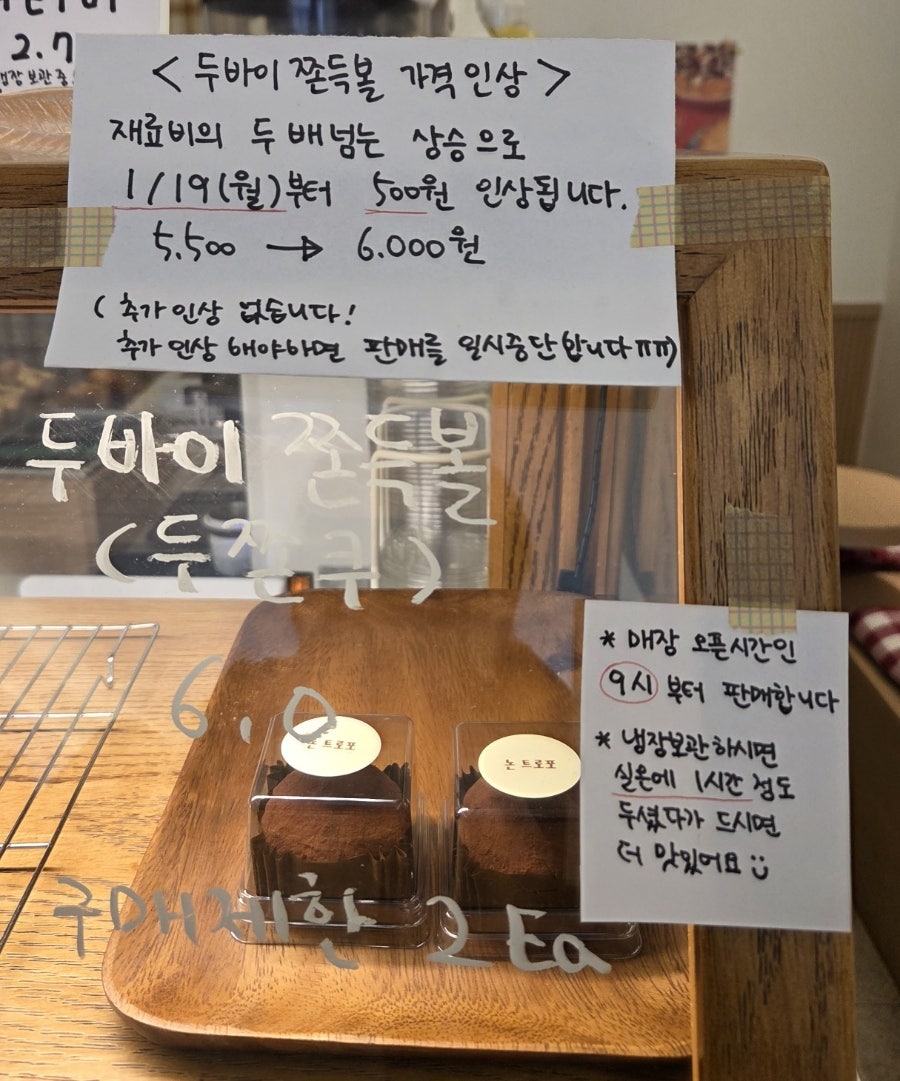 2.7
<두바이 쫀득볼 가격인상>
재료비의 두 배넘는 상승으로
1/19(월)부터 500원 인상됩니다.
5.500 → 6.000원
( 추가인상 없습니다!
추가 인상 해야하면 판매를 일시중단합니다ㅠㅠ)
두바이 쫀득볼
(두쫀쿠)
6.0
논트로포
논트로포
구매제한 2Ea
* 매장 오픈시간인
9시부터 판매합니다
* 냉장보관하시면
실온에 1시간 정도
두셨다가 드시면
더 맛있어요